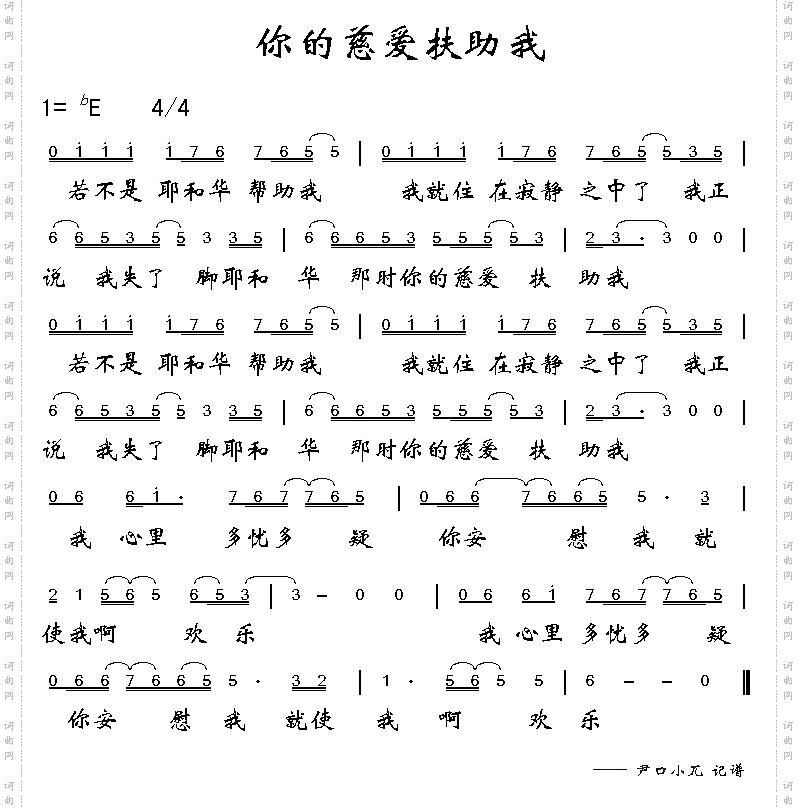 你的慈爱扶助我
1= bE 4/4
0 1 1 1 1 7 6 7 6 5 5 | 0 1 1 1 1 7 6 7 6 5 5 3 5 |
若不是 耶和华 帮助我 我就住 在寂静 之中了 我正
6 6 5 3 5 5 3 3 5 | 6 6 6 5 3 5 5 5 5 5 3 | 2 3 · 3 0 0 |
说 我失了 脚耶和 华 那时你的慈爱 扶 助我
0 1 1 1 1 7 6 7 6 5 5 | 0 1 1 1 1 7 6 7 6 5 5 3 5 |
若不是 耶和华 帮助我 我就住 在寂静 之中了 我正
6 6 5 3 5 5 3 3 5 | 6 6 6 5 3 5 5 5 5 5 3 | 2 3 · 3 0 0 |
说 我失了 脚耶和 华 那时你的慈爱 扶 助我
0 6 6 1 · 7 6 7 7 6 5 | 0 6 6 7 6 6 5 5 · 3 |
我 心里 多忧多 疑 你安 慰 我 就
2 1 5 6 5 6 5 3 | 3 – 0 0 | 0 6 6 1 7 6 7 7 6 5 |
使我啊 欢 乐 我 心里 多忧多 疑
0 6 6 7 6 6 5 5 · 3 2 | 1 · 5 6 5 5 | 6 – – 0
你安 慰 我 就使 我 啊 欢 乐
—— 尹口小兀 记谱
词曲网